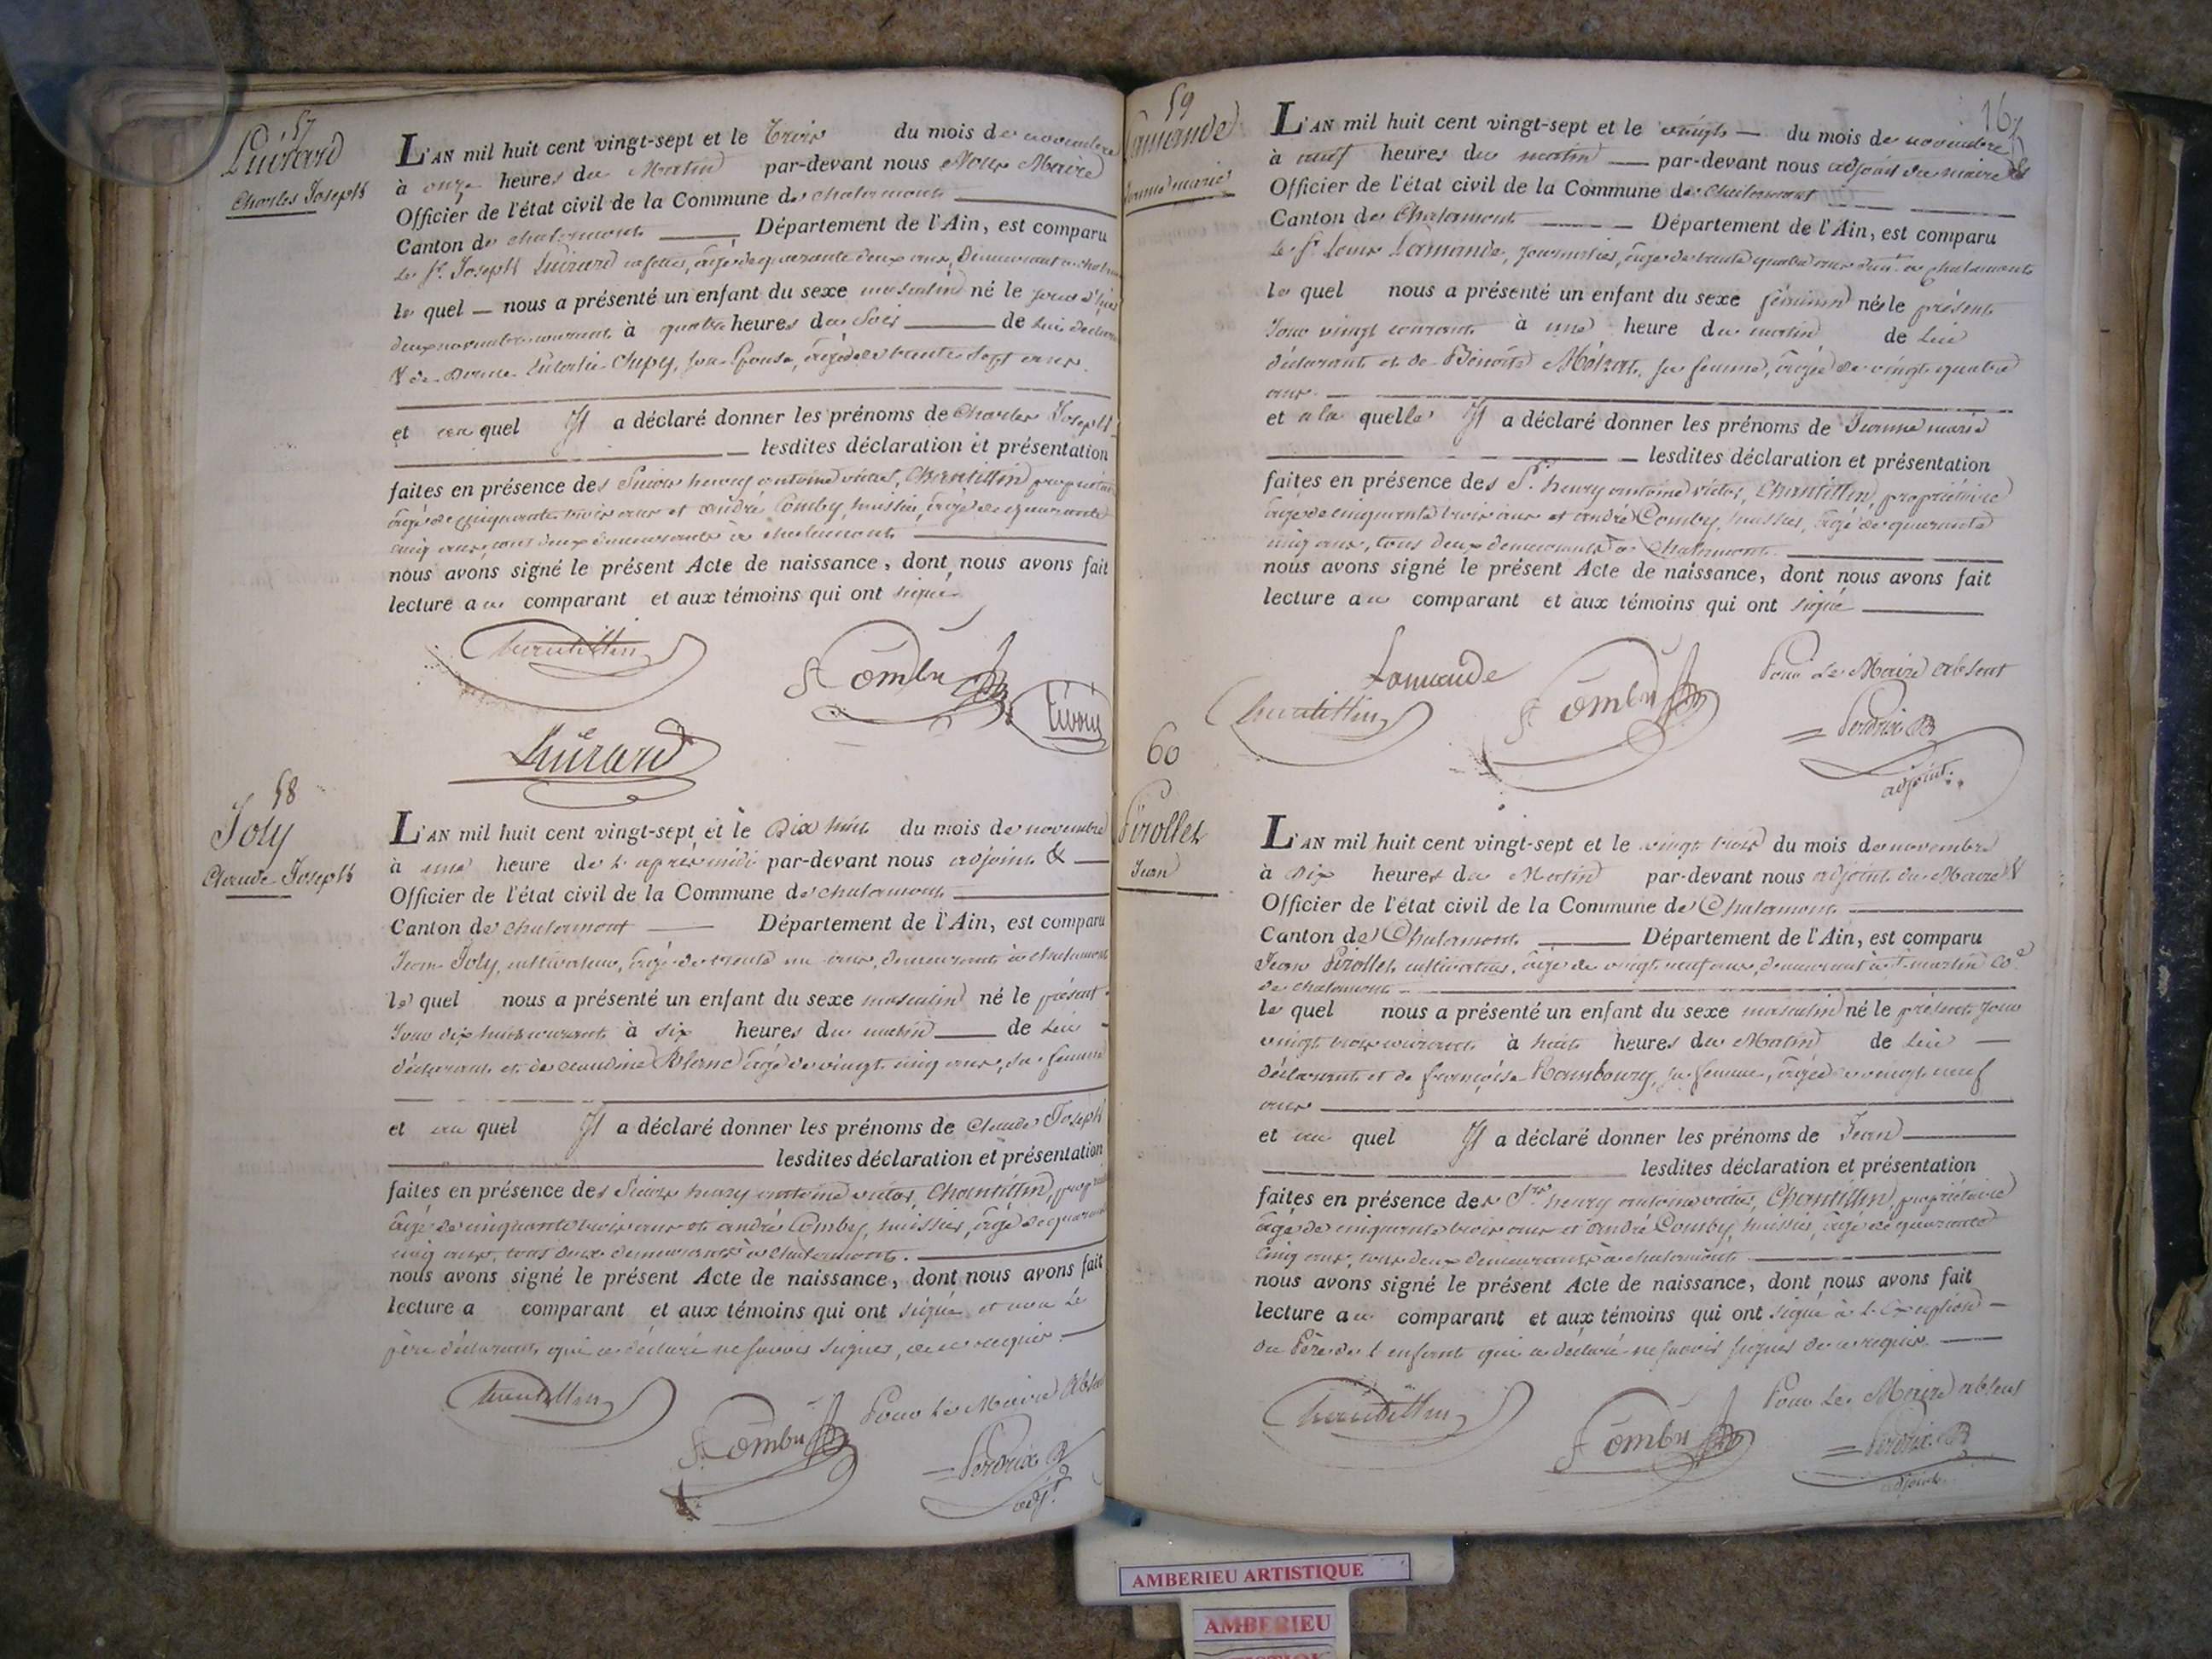 57
Luirard
Charles Joseph
L'AN mil huit cent vingt-sept et le trois du mois de novembre
à onze heures du Matin par-devant nous Nous Maire
Officier de l'état civil de la Commune de chalamont
Canton de chalamont Département de l'Ain, est comparu
le Sr. Joseph Luirard âgé de quarante deux ans, Demeurant à
le quel nous a présenté un enfant du sexe masculin né le jour d'hier
deux novembre courant à quatre heures du Soir de lui
& de son Epouse, âgée de trente sept ans.
et au quel Il a déclaré donner les prénoms de Charles Joseph
lesdites déclaration et présentation
faites en présence des Sieurs henry antoine victor, Chantillin propriétaire
âgé de cinquante trois ans et andré Comby, huissier, âgé de quarante
cinq ans, tous deux demeurants à chalamont
nous avons signé le présent Acte de naissance, dont nous avons fait
lecture au comparant et aux témoins qui ont signé
Chantillin
Comby
Luirard
58
Joly
Claude Joseph
L'AN mil huit cent vingt-sept et le Dix huit du mois de novembre
à une heure de l'après midi par-devant nous adjoint &
Officier de l'état civil de la Commune de chalamont
Canton de chalamont Département de l'Ain, est comparu
Jean Joly, cultivateur, âgé de trente un ans, demeurant à chalamont
le quel nous a présenté un enfant du sexe masculin né le présent
Jour dix huit courant à six heures du matin de lui
déclarant et de claudine Blanc âgé de vingt cinq ans, sa femme
et au quel Il a déclaré donner les prénoms de Claude Joseph
lesdites déclaration et présentation
faites en présence des Sieurs henry antoine victor, Chantillin,
âgé de cinquante trois ans et andré Comby, huissier, âgé de quarante
cinq ans, tous deux demeurants à chalamont.
nous avons signé le présent Acte de naissance, dont nous avons fait
lecture a comparant et aux témoins qui ont signé et non le
père déclarant, qui a déclaré ne savoir signer, de ce requis.
Chantillin
Comby
Pour Le Maire Absent
Perdrix
adjt
59
Lamande
Jeanne marie
167
L'AN mil huit cent vingt-sept et le vingt du mois de novembre
à neuf heures du matin par-devant nous adjoint du maire &
Officier de l'état civil de la Commune de Chalamont
Canton de Chalamont Département de l'Ain, est comparu
Le Sr. Louis Lamande, journalier, âgé de trente quatre ans à chalamont
le quel nous a présenté un enfant du sexe féminin née le présent
Jour vingt courant à une heure du matin de lui
déclarant et de Benoîte sa femme, âgée de vingt quatre
ans
et a la quelle Il a déclaré donner les prénoms de Jeanne marie
lesdites déclaration et présentation
faites en présence des Srs. henry antoine victor, Chantillin, propriétaire
âgé de cinquante trois ans et andré Comby, huissier, âgé de quarante
cinq ans, tous deux demeurants à Chalamont
nous avons signé le présent Acte de naissance, dont nous avons fait
lecture au comparant et aux témoins qui ont signé
Lamande
Chantillin
Comby
Pour Le Maire Absent
Perdrix
adjoint
60
Pirollet
Jean
L'AN mil huit cent vingt-sept et le vingt trois du mois de novembre
à Dix heures du Matin par-devant nous adjoint du Maire &
Officier de l'état civil de la Commune de Chalamont
Canton de Chalamont Département de l'Ain, est comparu
Jean Pirollet cultivateur, âgé de vingt neuf ans, demeurant à St. martin
de chalamont
le quel nous a présenté un enfant du sexe masculin né le présent jour
vingt trois courant à huit heures du Matin de lui
déclarant et de françoise Rambourg, sa femme, âgée de vingt neuf
ans
et au quel Il a déclaré donner les prénoms de Jean
lesdites déclaration et présentation
faites en présence des Srs. henry antoine victor, Chantillin, propriétaire
âgé de cinquante trois ans et andré Comby, huissier, âgé de quarante
cinq ans, tous deux demeurants à chalamont
nous avons signé le présent Acte de naissance, dont nous avons fait
lecture au comparant et aux témoins qui ont signé à l'exception
du Père de l'enfant qui a déclaré ne savoir signer de ce requis.
Chantillin
Comby
Pour Le Maire absent
Perdrix
adjoint
AMBERIEU ARTISTIQUE
AMBERIEU